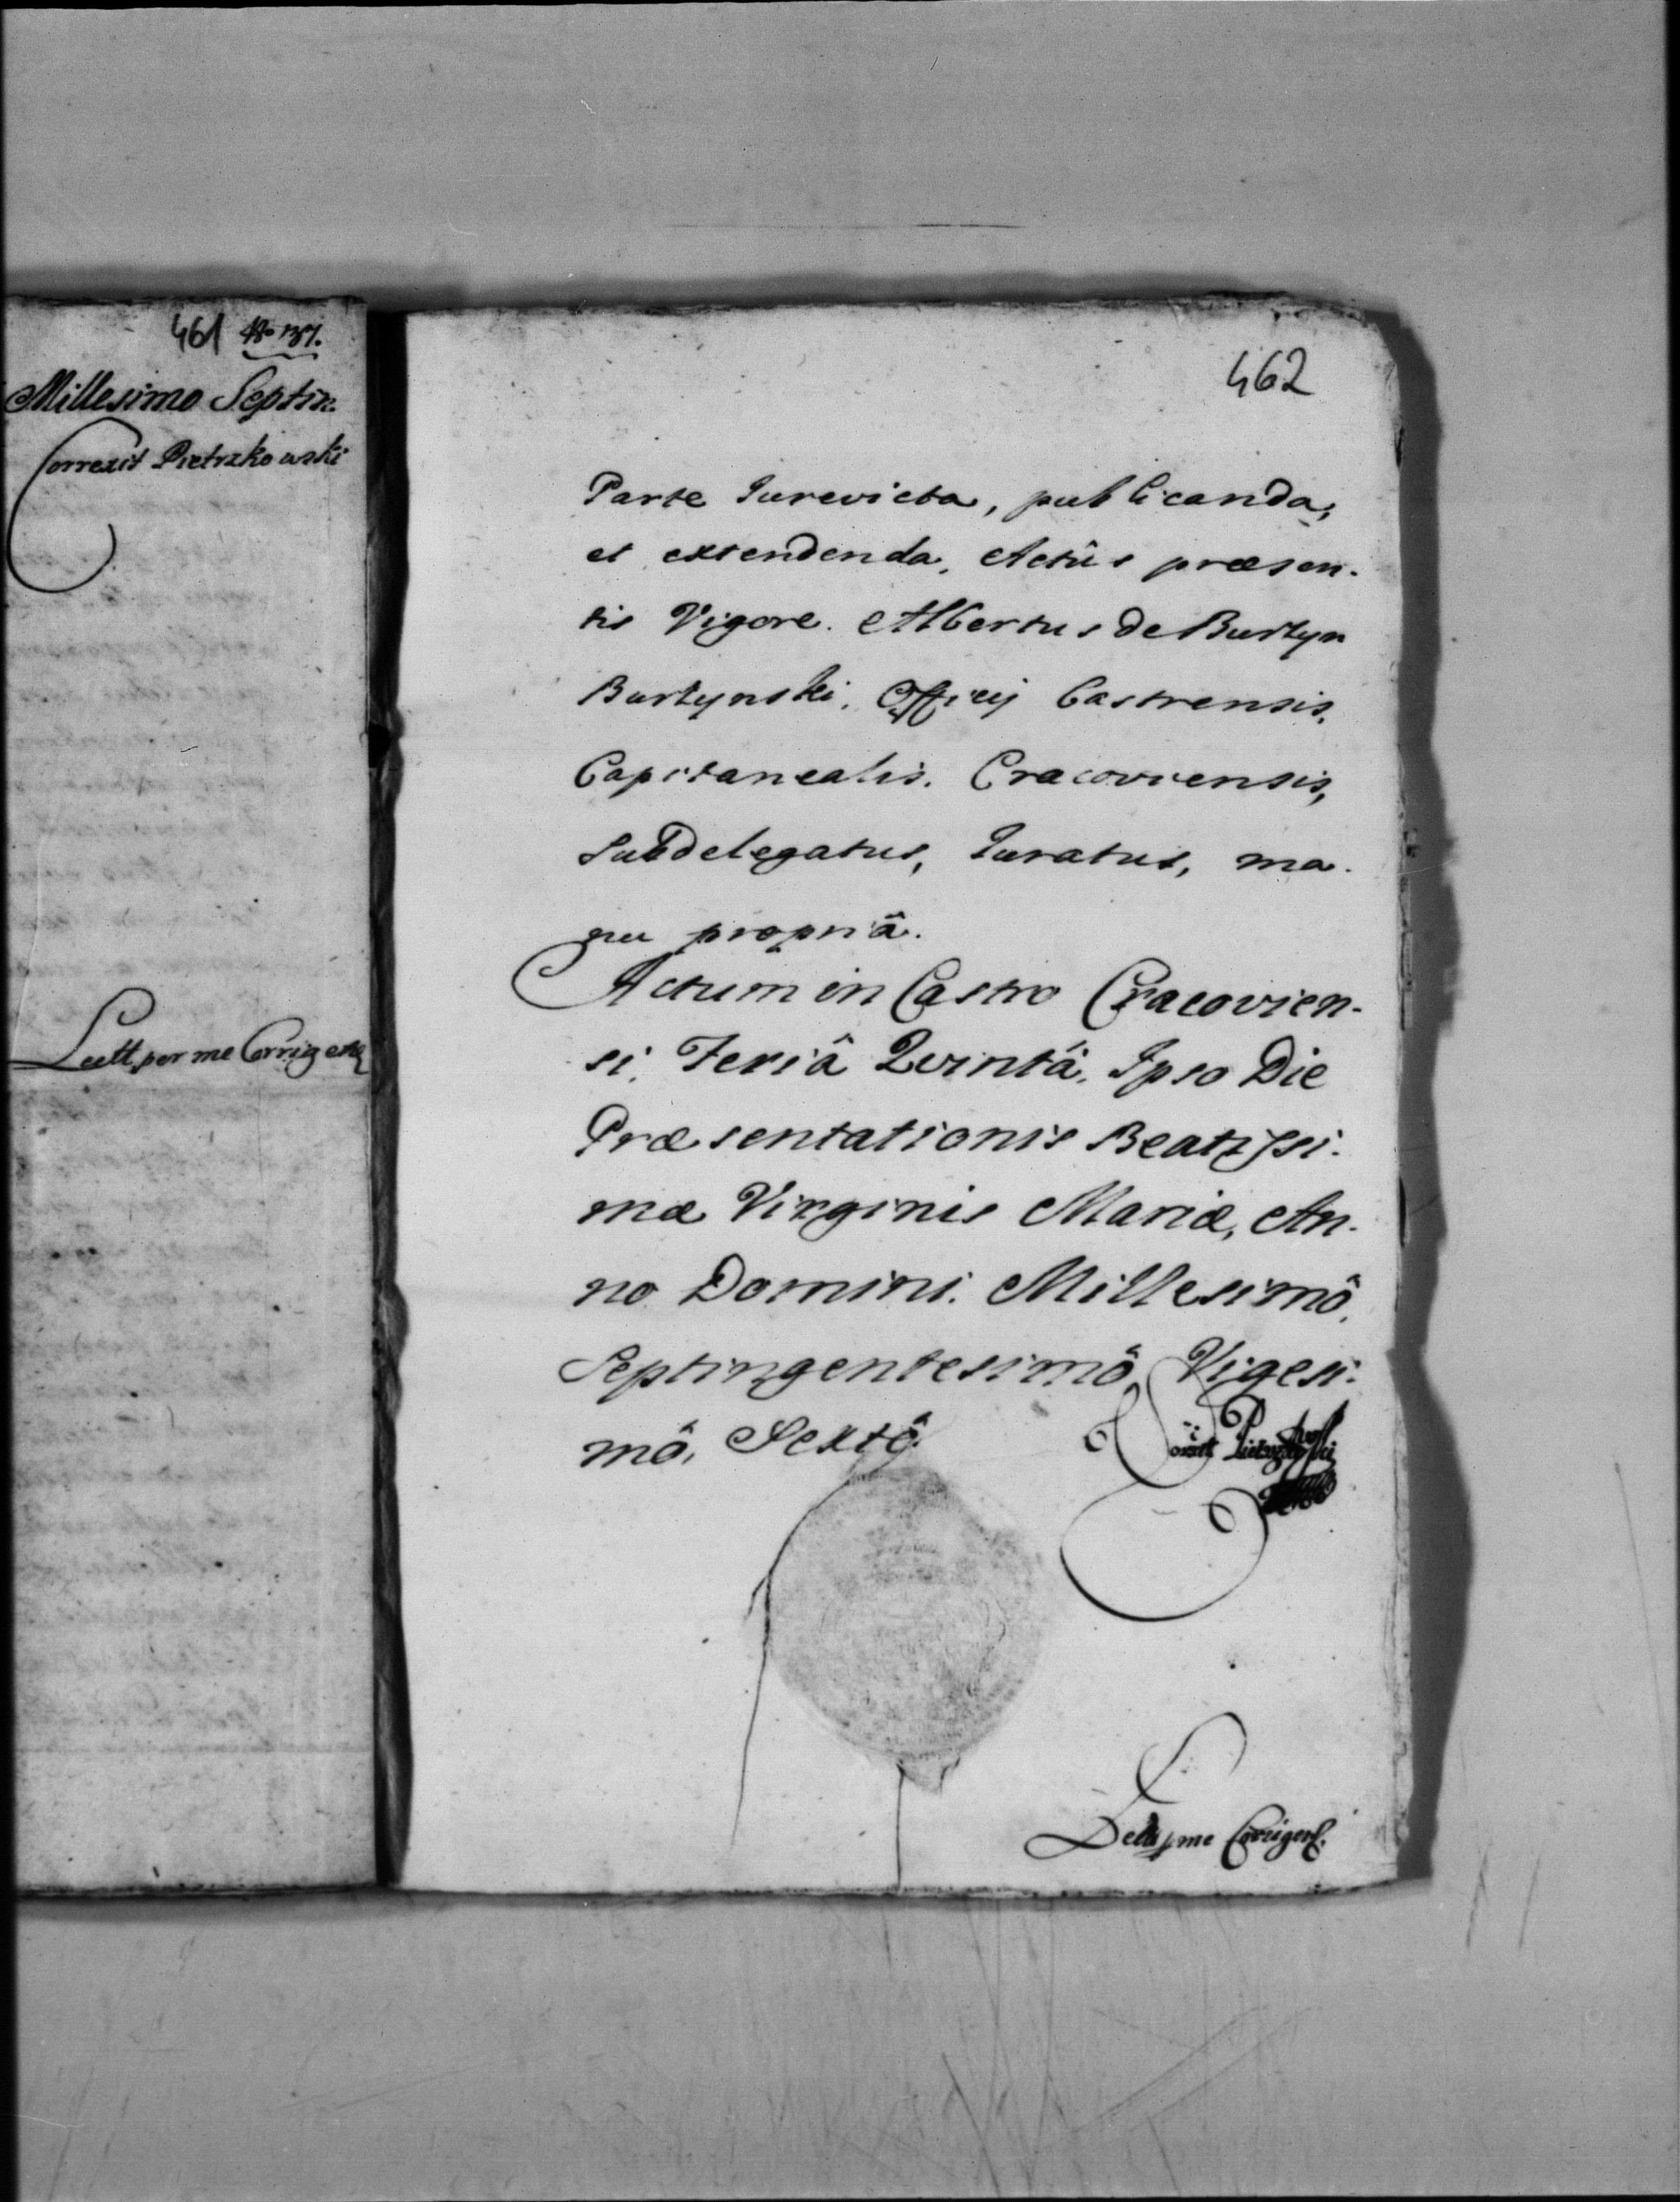 461 No 137.
Millesimo Septin.
Correxit Pietrzkowski
Lect. per me Corrigente
462
Parte Iurevicta, publicanda,
et extendenda. Actûs præsen-
tis Vigore. Albertus de Burtyn
Burtynski. Officij Castrensis,
Capitanealis. Cracoviensis,
Subdelegatus, Iuratus, ma-
nu propriâ.
Actum in Castro Cracovien-
si. Feriâ Qvintâ. Ipso Die
Præsentationis Beatissi-
mæ Virginis Mariæ, An-
no Domini. Millesimô,
Septingentesimô, Vigesi-
mô, Sextô.
me